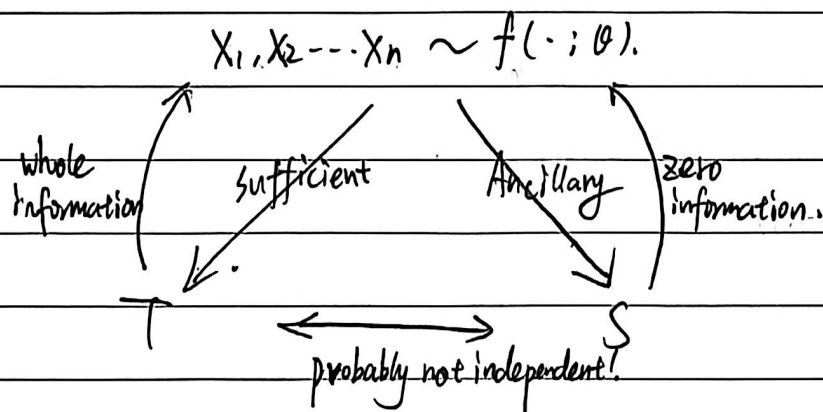 X₁, X₂ --- Xₙ ~ f(· ; θ).
whole
information
sufficient
Ancillary
zero
information..
T
S
probably not independent!